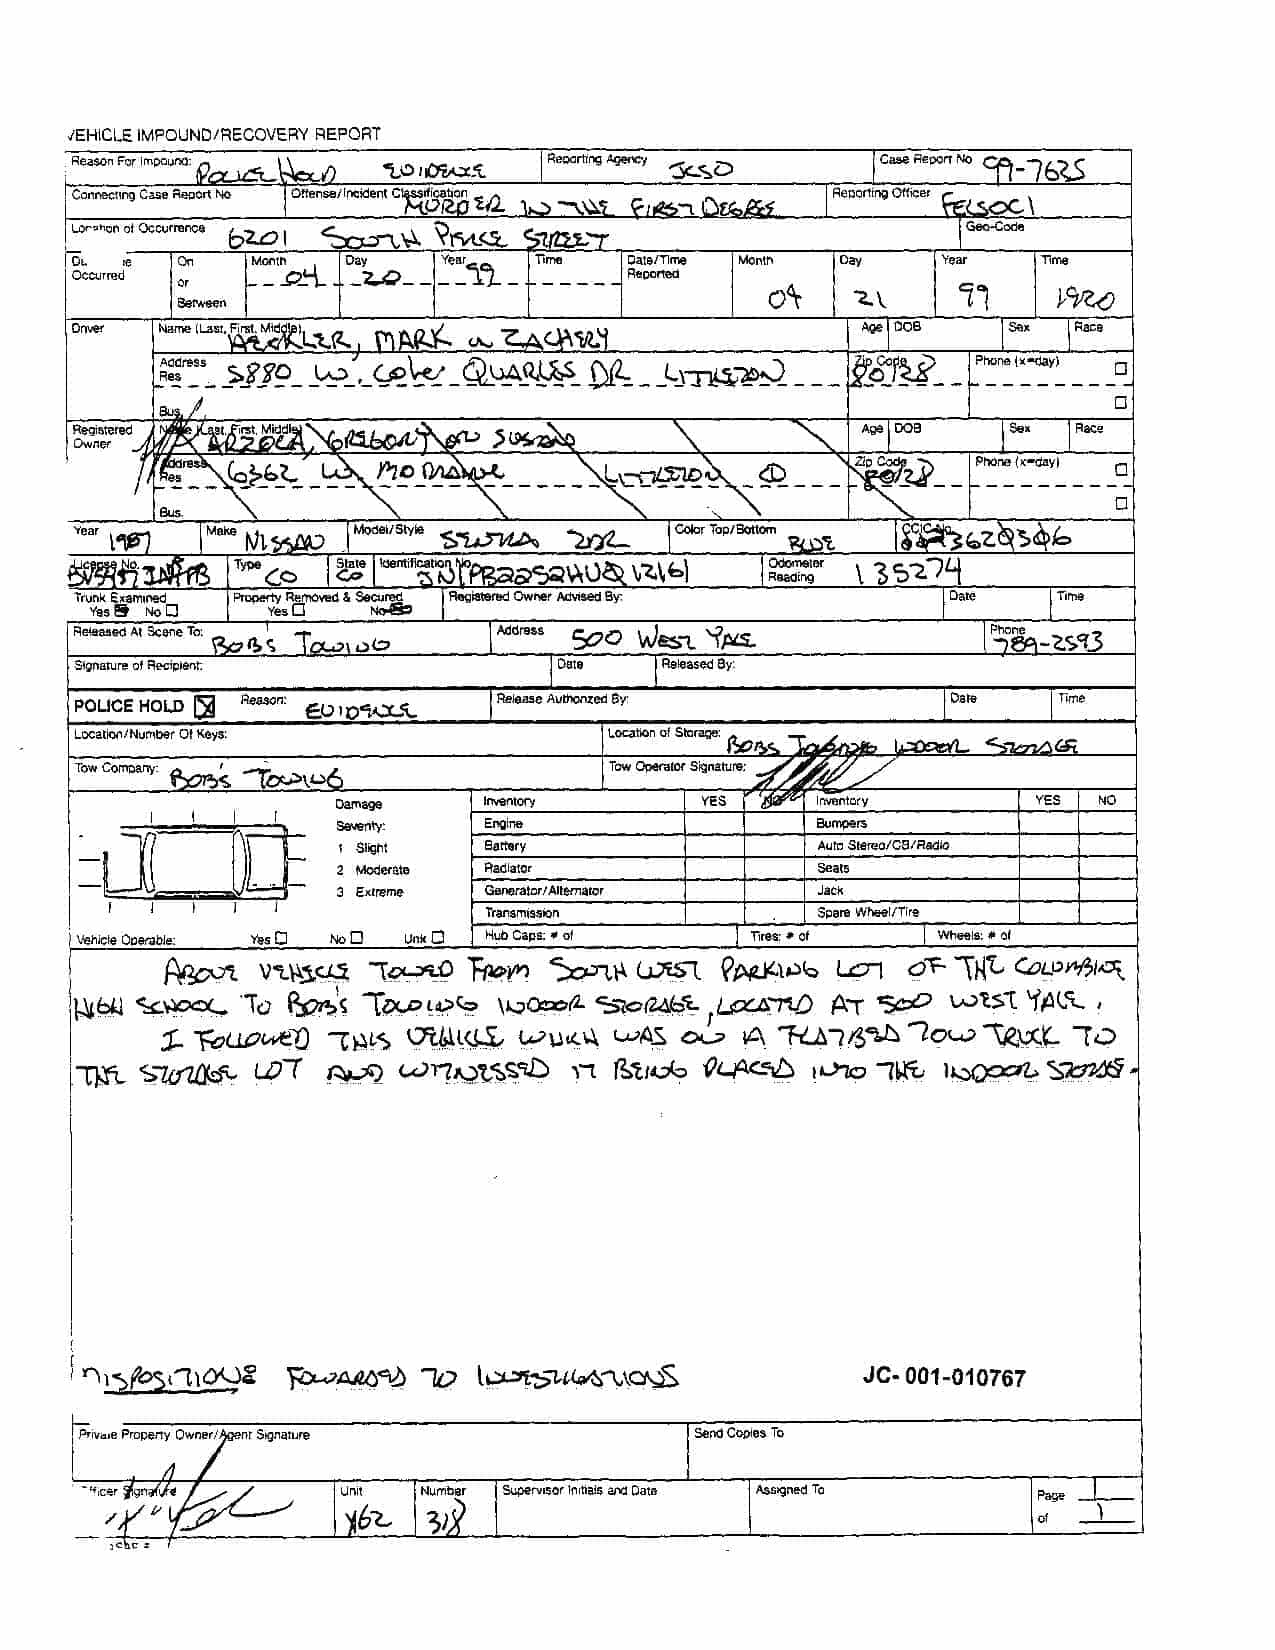 VEHICLE IMPOUND/RECOVERY REPORT
Reason For Impound: POLICE HOLD EVIDENCE Reporting Agency JCSO Case Report No 99-7625
Connecting Case Report No Offense/Incident Classification MURDER IN THE FIRST DEGREE Reporting Officer FELSOCI
Location of Occurrence 6201 SOUTH PIERCE STREET Geo-Code
Occurred On or Between Month 04 Day 20 Year 99 Time Date/Time Reported Month 04 Day 21 Year 99 Time 1920
Driver Name (Last, First, Middle) MARK or ZACHERY Age DOB Sex Race
Address Res 5880 W. QUARLES DR LITTLETON Zip Code 80128 Phone (x=day)
Bus.
Registered Owner Name (Last, First, Middle) GREGORY or SUSAN Age DOB Sex Race
Address Res 6362 W LITTLETON CO Zip Code 80128 Phone (x=day)
Bus.
Year 1987 Make NISSAN Model/Style SENTRA 2DR Color Top/Bottom BLUE CCIC No.
License No. Type CO State CO Identification No. Odometer Reading 135274
Trunk Examined Yes No Property Removed & Secured Yes No Registered Owner Advised By: Date Time
Released At Scene To: BOBS TOWING Address 500 WEST YALE Phone 789-2593
Signature of Recipient: Date Released By:
POLICE HOLD X Reason: EVIDENCE Release Authorized By: Date Time
Location/Number Of Keys: Location of Storage: BOBS TOWING INDOOR STORAGE
Tow Company: BOB'S TOWING Tow Operator Signature:
Damage Inventory YES NO Inventory YES NO
Severity: Engine Bumpers
1 Slight Battery Auto Stereo/CB/Radio
2 Moderate Radiator Seats
3 Extreme Generator/Alternator Jack
Transmission Spare Wheel/Tire
Vehicle Operable: Yes No Unk Hub Caps: # of Tires: # of Wheels: # of
ABOVE VEHICLE TOWED FROM SOUTH WEST PARKING LOT OF THE COLUMBINE
HIGH SCHOOL TO BOB'S TOWING INDOOR STORAGE, LOCATED AT 500 WEST YALE.
I FOLLOWED THIS VEHICLE WHICH WAS ON A FLATBED TOW TRUCK TO
THE STORAGE LOT AND WITNESSED IT BEING PLACED INTO THE INDOOR STORAGE.
DISPOSITION: FOWARDED TO INVESTIGATIONS JC-001-010767
Private Property Owner/Agent Signature Send Copies To
Officer Signature Unit X62 Number 318 Supervisor Initials and Date Assigned To Page 1
of 1